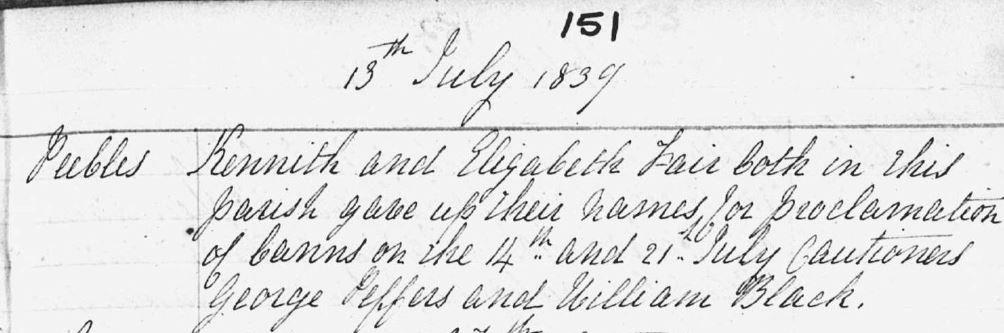 151
13th July 1839
Peebles Kennith and Elizabeth Fair both in this
parish gave up their names for proclamation
of banns on the 14th and 21st July Cautioners
George Peffers and William Black.